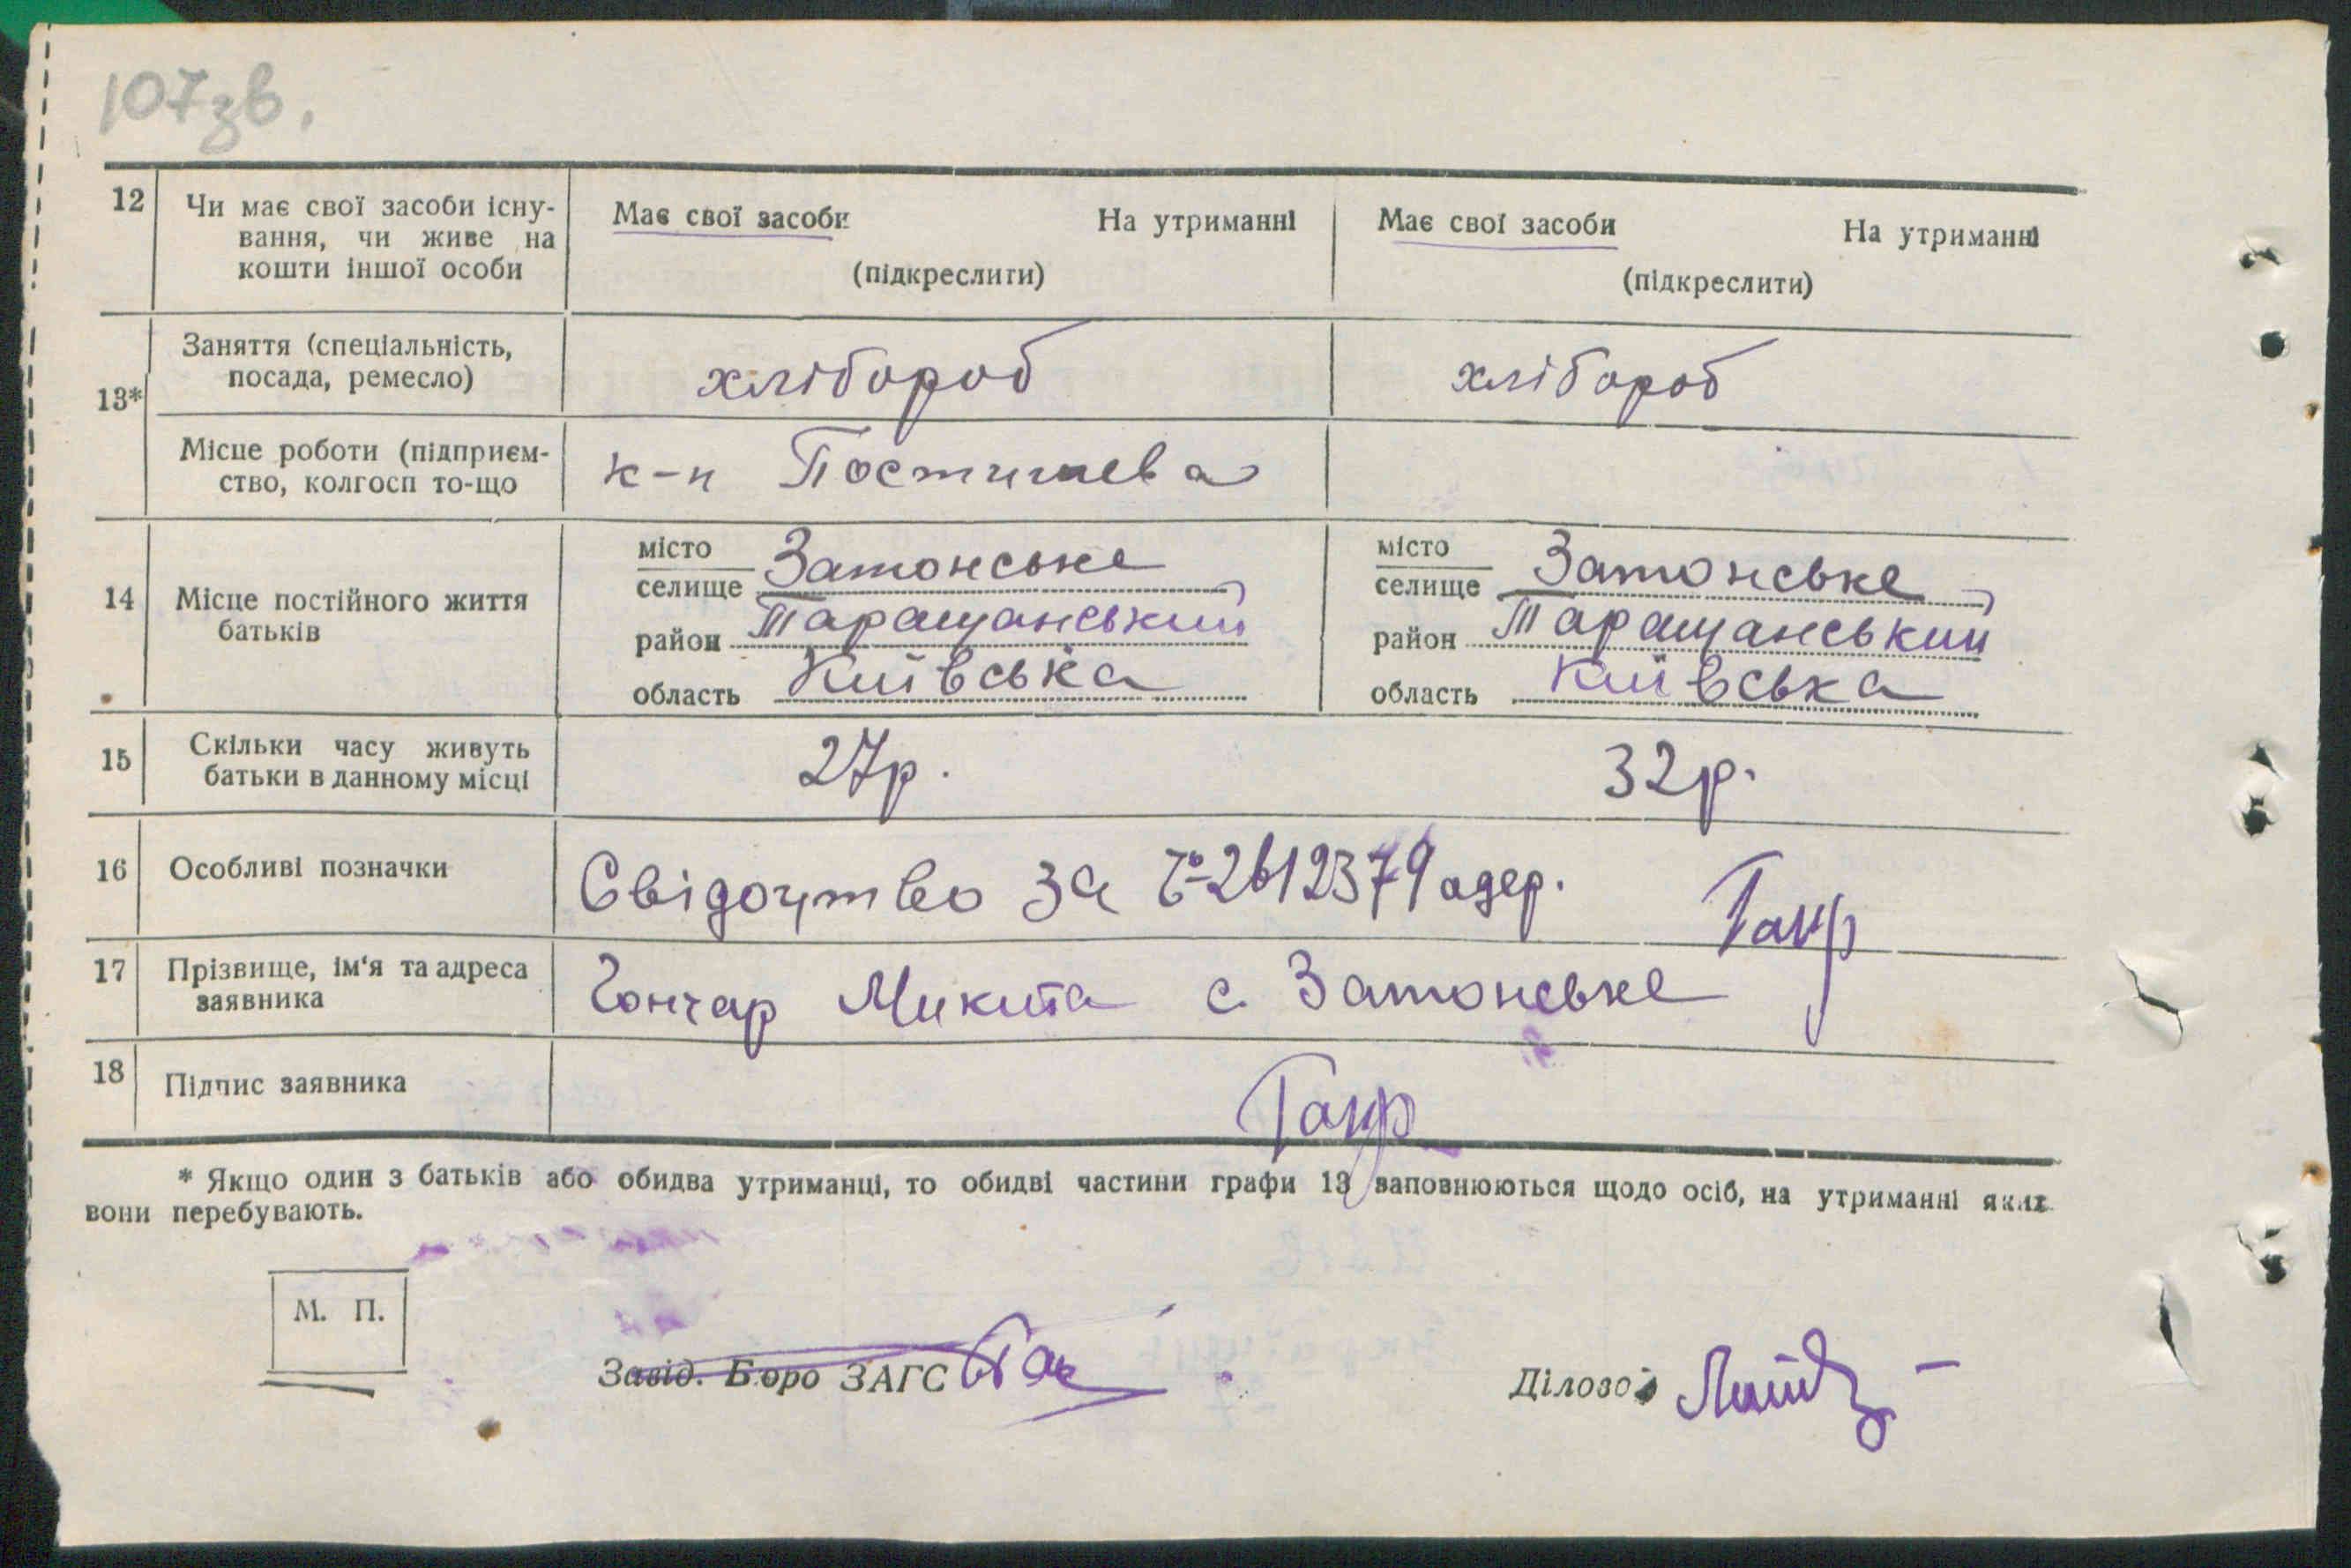 107зв.
12 Чи має свої засоби існу- Має свої засоби На утриманні Має свої засоби На утриманні
вання, чи живе на
кошти іншої особи (підкреслити) (підкреслити)
13* Заняття (спеціальність, хлібороб хлібороб
посада, ремесло)
Місце роботи (підприєм- к-п Постишева
ство, колгосп то-що
14 Місце постійного життя батьків
місто Затонське місто Затонське
селище селище
район Таращанський район Таращанський
область Київська область Київська
15 Скільки часу живуть 27р. 32р.
батьки в данному місці
16 Особливі позначки Свідоцтво за № 2612379 одер. Гонр
17 Прізвище, ім‘я та адреса Гончар Микита с. Затонське
заявника
18 Підпис заявника Гонр
* Якщо один з батьків або обидва утриманці, то обидві частини графи 13 заповнюються щодо осіб, на утриманні яких
вони перебувають.
М. П.
Завід. Бюро ЗАГС Діловод